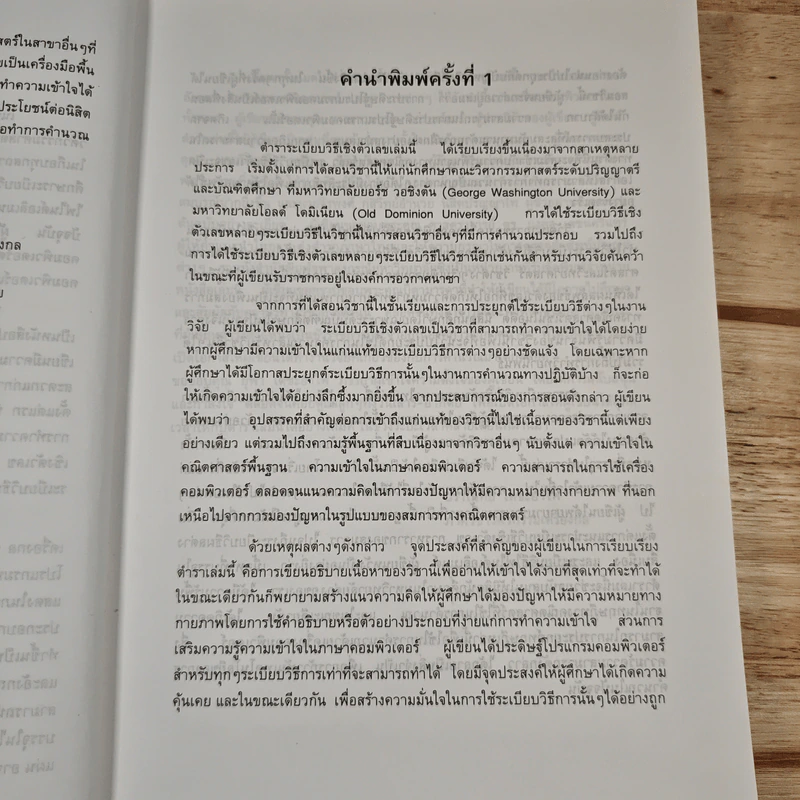 ตร์ในสาขาอื่นๆที่
เป็นเครื่องมือพื้น
ทำความเข้าใจได้
ประโยชน์ต่อนิสิต
อทำการคำนวณ
คำนำพิมพ์ครั้งที่ 1
ตำราระเบียบวิธีเชิงตัวเลขเล่มนี้ ได้เรียบเรียงขึ้นเนื่องมาจากสาเหตุหลาย
ประการ เริ่มตั้งแต่การได้สอนวิชานี้ให้แก่นักศึกษาคณะวิศวกรรมศาสตร์ระดับปริญญาตรี
และบัณฑิตศึกษา ที่มหาวิทยาลัยยอร์ช วอชิงตัน (George Washington University) และ
มหาวิทยาลัยโอลด์ โดมิเนียน (Old Dominion University) การได้ใช้ระเบียบวิธีเชิง
ตัวเลขหลายๆระเบียบวิธีในวิชานี้ในการสอนวิชาอื่นๆที่มีการคำนวณประกอบ รวมไปถึง
การได้ใช้ระเบียบวิธีเชิงตัวเลขหลายๆระเบียบวิธีในวิชานี้อีกเช่นกันสำหรับงานวิจัยค้นคว้า
ในขณะที่ผู้เขียนรับราชการอยู่ในองค์การอวกาศนาซา
จากการที่ได้สอนวิชานี้ในชั้นเรียนและการประยุกต์ใช้ระเบียบวิธีต่างๆในงาน
วิจัย ผู้เขียนได้พบว่า ระเบียบวิธีเชิงตัวเลขเป็นวิชาที่สามารถทำความเข้าใจได้โดยง่าย
หากผู้ศึกษามีความเข้าใจในแก่นแท้ของระเบียบวิธีการต่างๆอย่างชัดแจ้ง โดยเฉพาะหาก
ผู้ศึกษาได้มีโอกาสประยุกต์ระเบียบวิธีการนั้นๆในงานการคำนวณทางปฏิบัติบ้าง ก็จะก่อ
ให้เกิดความเข้าใจได้อย่างลึกซึ้งมากยิ่งขึ้น จากประสบการณ์ของการสอนดังกล่าว ผู้เขียน
ได้พบว่า อุปสรรคที่สำคัญต่อการเข้าถึงแก่นแท้ของวิชานี้ไม่ใช่เนื้อหาของวิชานี้แต่เพียง
อย่างเดียว แต่รวมไปถึงความรู้พื้นฐานที่สืบเนื่องมาจากวิชาอื่นๆ นับตั้งแต่ ความเข้าใจใน
คณิตศาสตร์พื้นฐาน ความเข้าใจในภาษาคอมพิวเตอร์ ความสามารถในการใช้เครื่อง
คอมพิวเตอร์ ตลอดจนแนวความคิดในการมองปัญหาให้มีความหมายทางกายภาพ ที่นอก
เหนือไปจากการมองปัญหาในรูปแบบของสมการทางคณิตศาสตร์
ด้วยเหตุผลต่างๆดังกล่าว จุดประสงค์ที่สำคัญของผู้เขียนในการเรียบเรียง
ตำราเล่มนี้ คือการเขียนอธิบายเนื้อหาของวิชานี้เพื่ออ่านให้เข้าใจได้ง่ายที่สุดเท่าที่จะทำได้
ในขณะเดียวกันก็พยายามสร้างแนวความคิดให้ผู้ศึกษาได้มองปัญหาให้มีความหมายทาง
กายภาพโดยการใช้คำอธิบายหรือตัวอย่างประกอบที่ง่ายแก่การทำความเข้าใจ ส่วนการ
เสริมความรู้ความเข้าใจในภาษาคอมพิวเตอร์ ผู้เขียนได้ประดิษฐ์โปรแกรมคอมพิวเตอร์
สำหรับทุกๆระเบียบวิธีการเท่าที่จะสามารถทำได้ โดยมีจุดประสงค์ให้ผู้ศึกษาได้เกิดความ
คุ้นเคย และในขณะเดียวกัน เพื่อสร้างความมั่นใจในการใช้ระเบียบวิธีการนั้นๆได้อย่างถูก